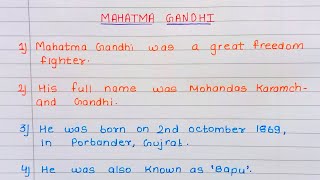 MAHATMA GANDHI
1) Mahatma Gandhi was a great freedom
fighter.
2) His full name was Mohandas Karamch-
and Gandhi.
3) He was born on 2nd octomber 1869,
in Porbander, Gujrat.
4) He was also known as 'Bapu'.